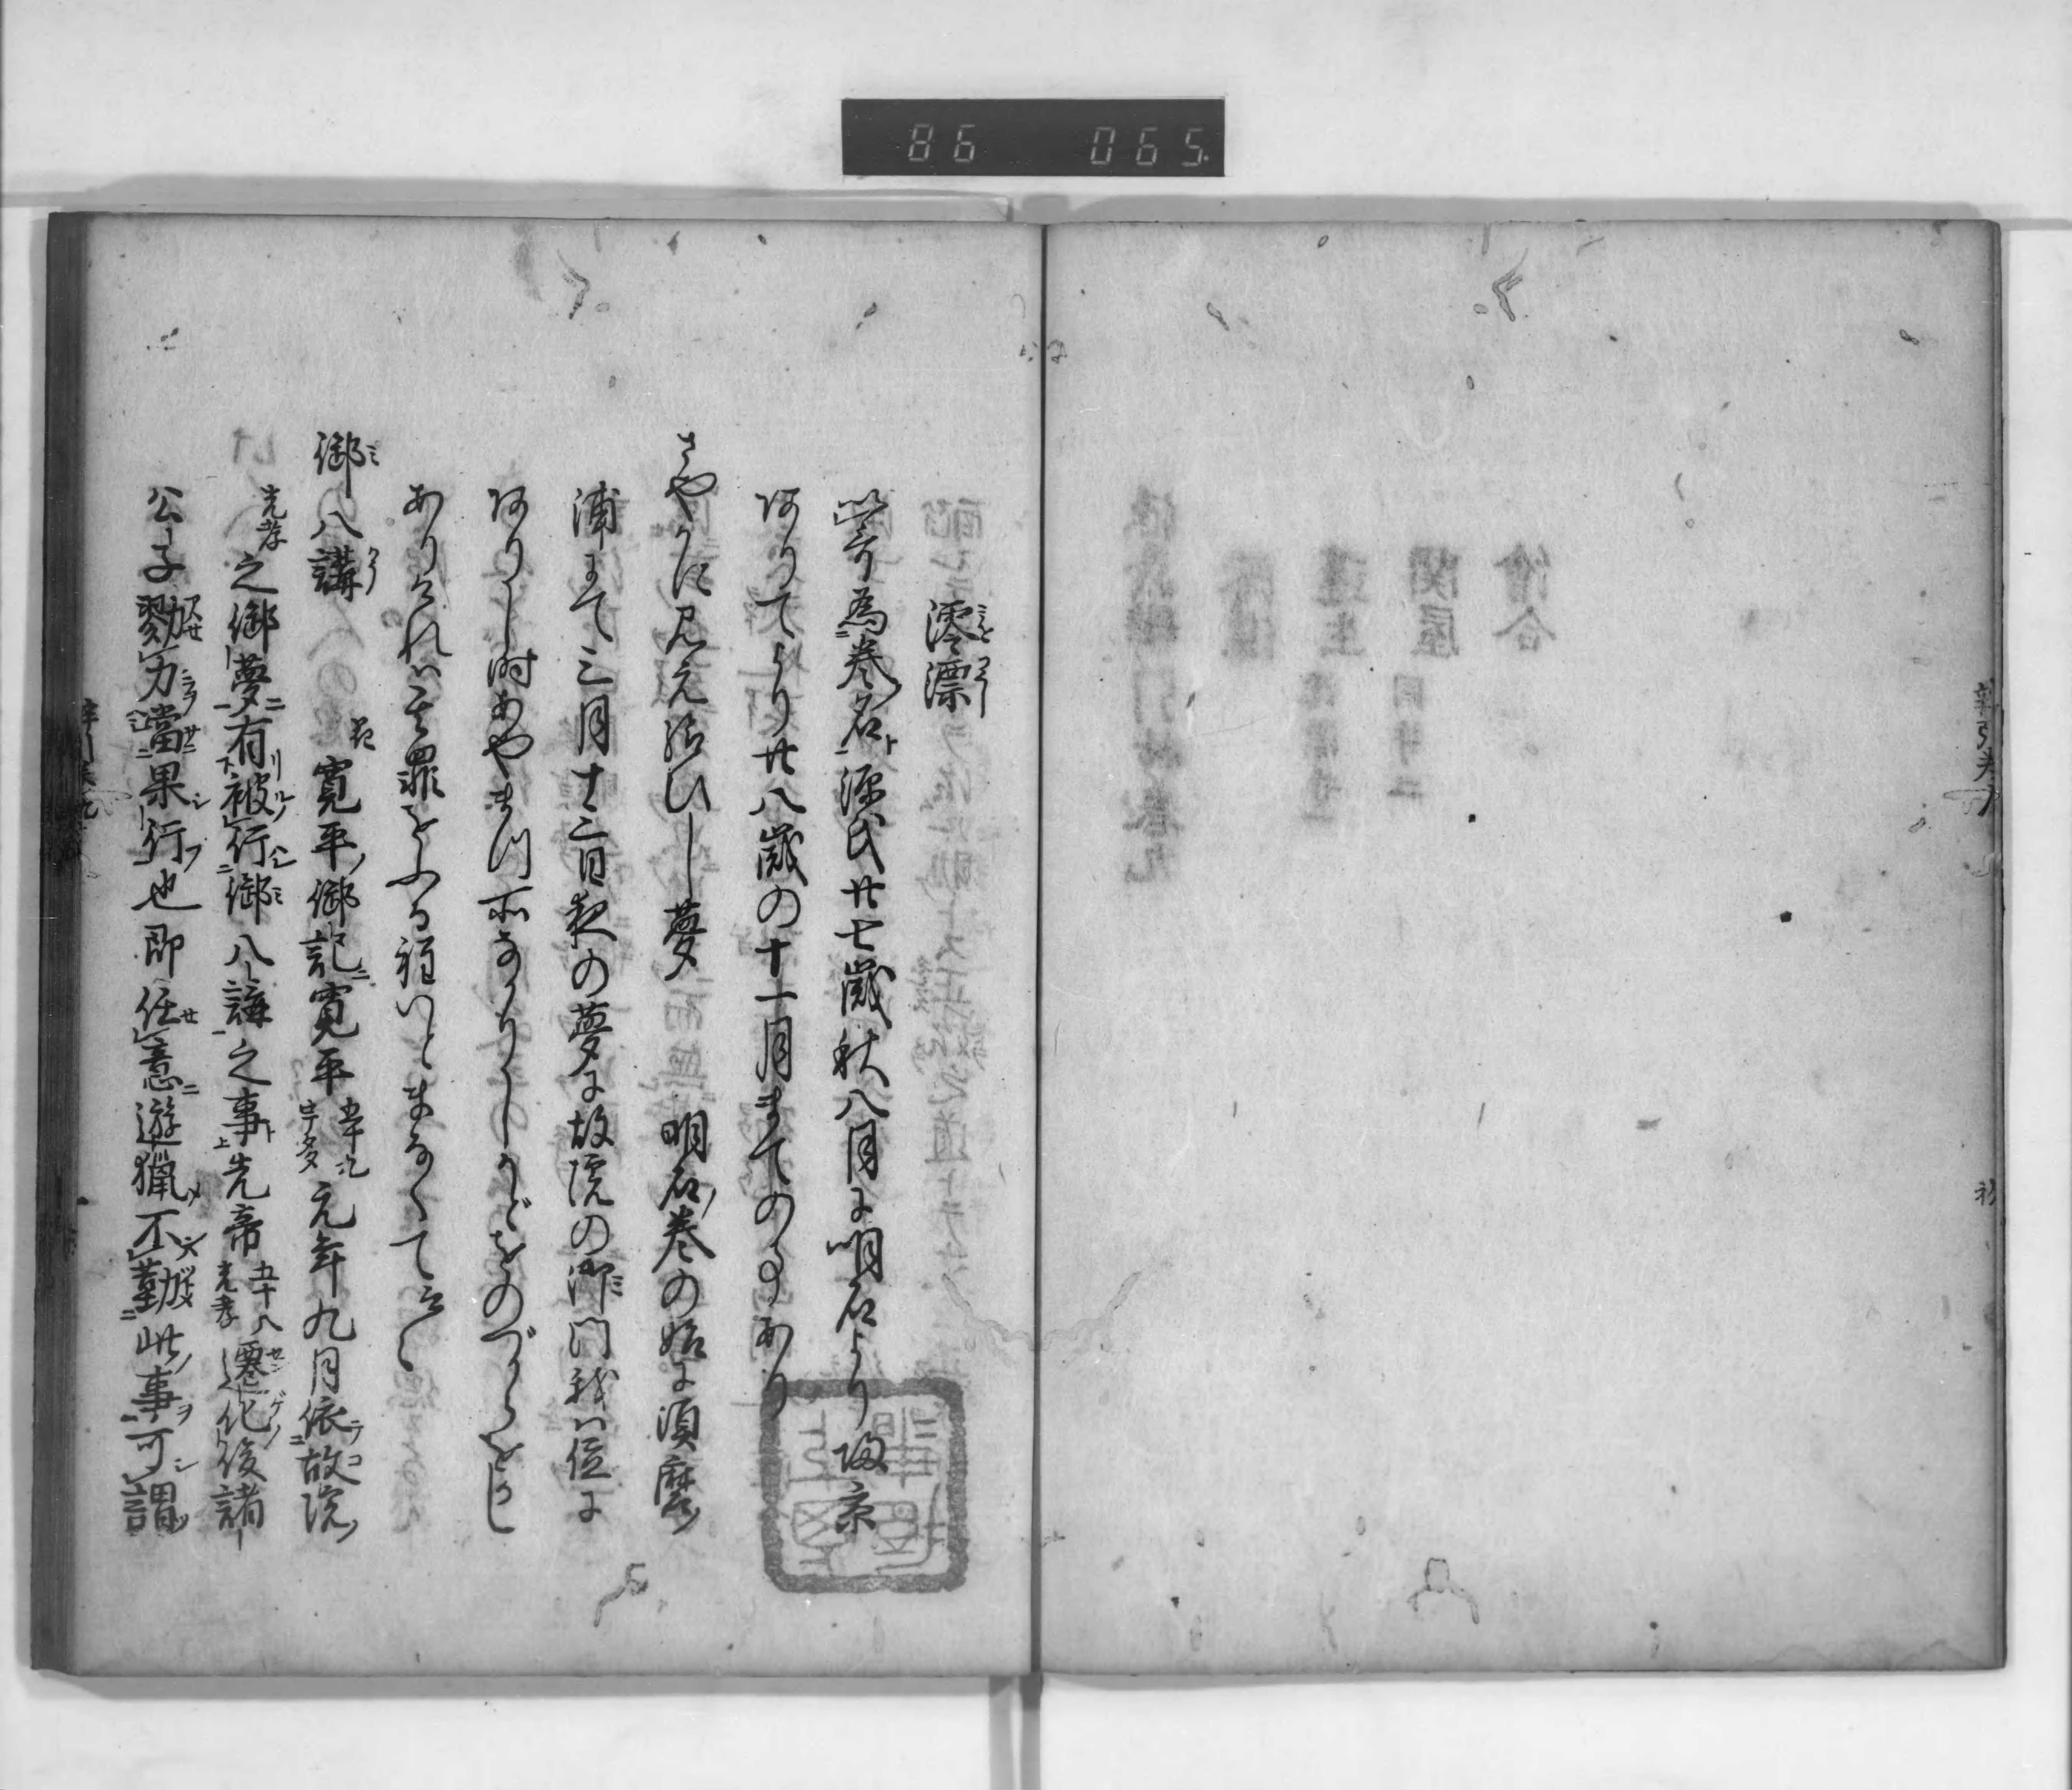 86 065
澪漂
以哥為巻名源氏廿七歳秋八月に明石より帰京
ありてより廿八歳の十一月まての事あり
さやかに見え給ひし夢 明石巻の始に須磨
浦にて三月十三日夜の夢に故院の御門我は位に
ありし時あやまつ所なかりしかどをのづからをかし
ありけれは其罪ををふる程いとまなくて云々
御八講 花 寛平御記寛平五十九宇多元年九月依故院
光孝之御夢有被行御八講之事先帝五十八光孝遷化後諸
公子勠力當果行也即任意遊猟不勤此事可謂